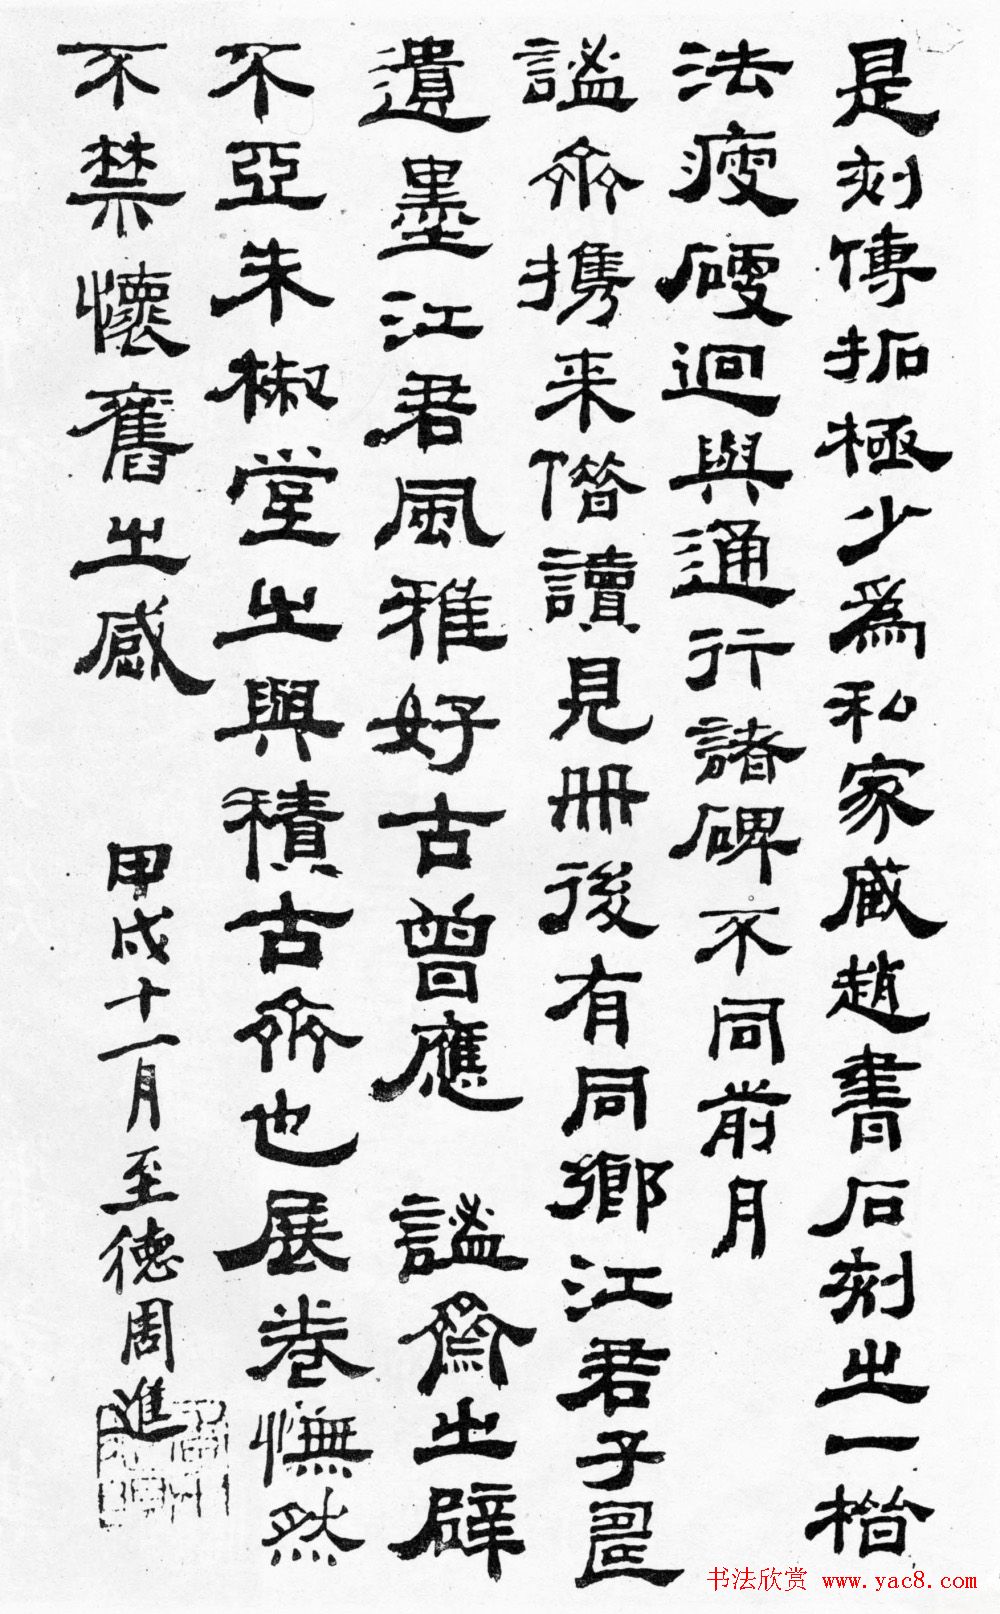 是刻傳拓極少為私家藏趙書石刻之一楷
法瘦硬迴與通行諸碑不同前月
謐齋攜来借讀見冊後有同鄉江君子
遺墨江君風雅好古曾應 謐齋之辟
不亞朱椒堂之與積古齋也展卷憮然
不禁懷舊之感
甲戌十一月至德周進
书法欣赏 www.yac8.com